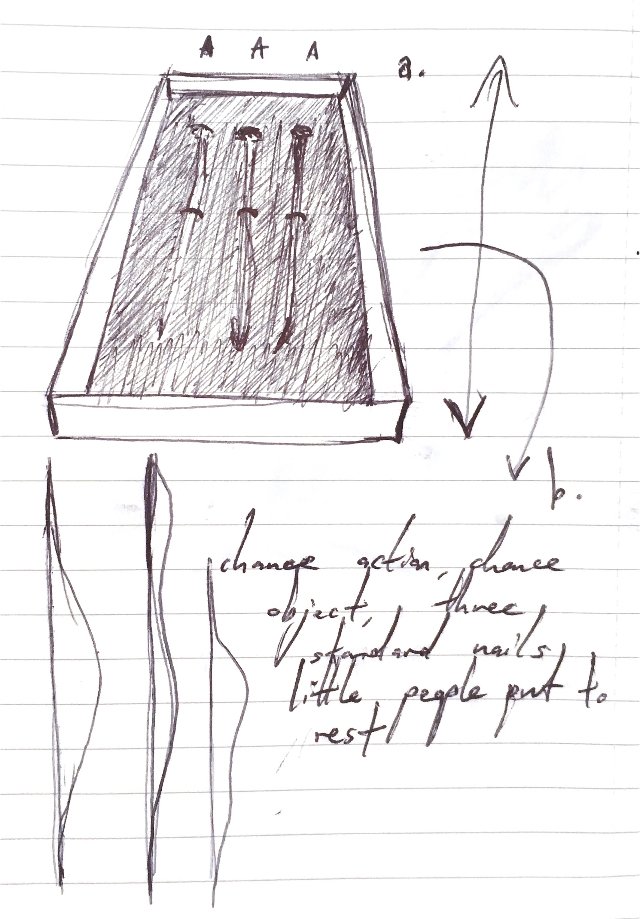 A A A
a.
b.
change action, chance
object, three
standard nails,
little people put to
rest